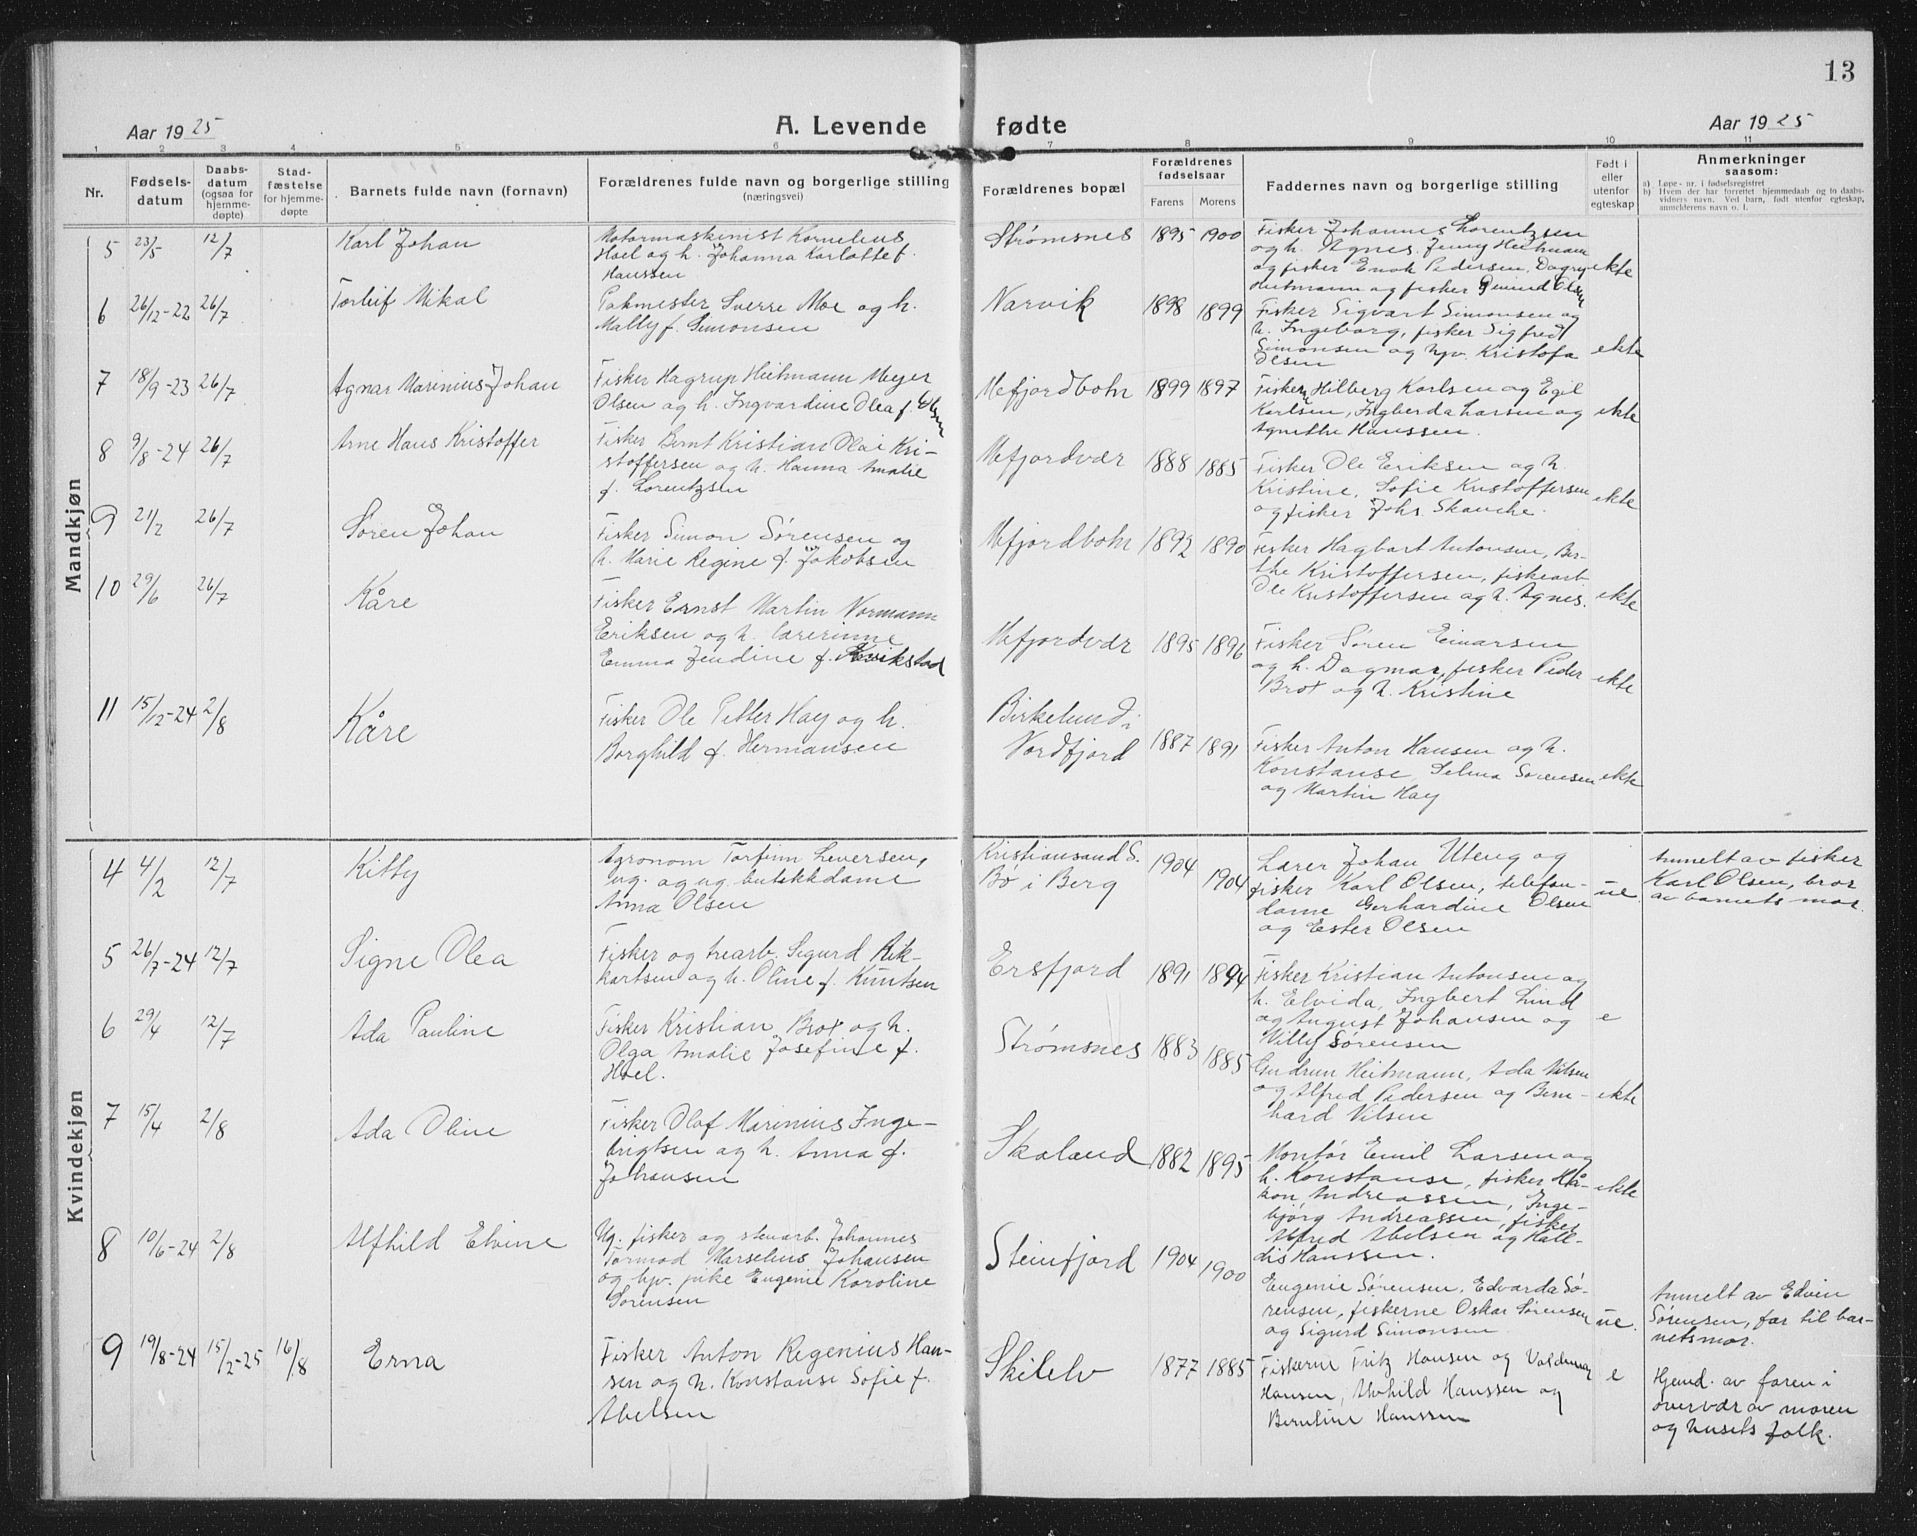 13
Aar 1925
A. Levende fødte
Aar 1925
1 2 3 4 5 6 7 8 9 10 11
Nr.
Fødsels-
datum
Daabs-
datum
(ogsaa for
hjemme-
døpte)
Stad-
fæstelse
for hjemme-
døpte
Barnets fulde navn (fornavn)
Forældrenes fulde navn og borgerlige stilling
(næringsvei)
Forældrenes bopæl
Forældrenes
fødselsaar
Farens Morens
Faddernes navn og borgerlige stilling
Født i
eller
utenfor
egteskap
Anmerkninger
saasom:
a) Løpe-nr. i fødselsregistret
b) Hvem der har forrettet hjemmedaab og to daabs-
vidners navn. Ved barn, født utenfor egteskap,
anmelderens navn o. l.
Mandkjøn
5 23/5 12/7 Karl Johan
Motormaskinist Kornelius
Hoel og h. Johanna Karlotte f.
Hanssen
Strømsnes 1895 1900
Fisker Johannes Lorentzsen
og h. Agnes. Jenny Heitmann
og fisker Enok Pedersen, Dagny
Heitmann og fisker Olsen
ekte
6 26/12-22 26/7 Torleif Mikal
Pakmester Sverre Moe og h.
Mally f. Simonsen
Narvik 1898 1899
Fisker Sigvart Simonsen og
h. Ingeborg, fisker Sigfred
Simonsen og hjv. Kristofa
Olsen
ekte
7 18/9-23 26/7 Agnar Marinius Johan
Fisker Hagrup Heitmann Meyer
Olsen og h. Ingvardine Olea f. Olsen
Mefjordbotn 1899 1897
Fisker Hilberg Karlsen og Egil
Karlsen, Ingberda Larsen og
Agnethe Hanssen.
ekte
8 9/8-24 26/7 Arne Hans Kristoffer
Fisker Bernt Kristian Olai Kri-
stoffersen og h. Hanna Amalie
f. Lorentzsen
Mefjordvær 1888 1885
Fisker Ole Eriksen og h.
Kristine, Sofie Kristoffersen
og fisker Johs. Skanche.
ekte
9 21/2 26/7 Søren Johan
Fisker Simon Sørensen og
h. Marie Regine f. Jakobsen
Mefjordbotn 1892 1890
Fisker Hagbart Antonsen, Ber-
the Kristoffersen, fiskearb.
Ole Kristoffersen og h. Agnes.
ekte
10 29/6 26/7 Kåre
Fisker Ernst Martin Normann
Eriksen og h. lærerinne
Emma Jendine f. Kvikstad
Mefjordvær 1895 1896
Fisker Søren Einarsen
og h. Dagmar, fisker Peder
Brox og h. Kristine
ekte
11 15/12-24 2/8 Kåre
Fisker Ole Petter Hay og h.
Borghild f. Hermansen
Birkelund i
Nordfjord 1887 1891
Fisker Anton Hansen og h.
Konstanse, Selma Sørensen
og Martin Hay
ekte
Kvindekjøn
4 4/2 12/7 Kitty
Agronom Torfinn Leversen,
ug. og ug. butikkdame
Anna Olsen
Kristiansand S.
Bø i Berg 1904 1904
Lærer Johan Uteng og
fisker Karl Olsen, telefon-
dame Gerhardine Olsen
og Ester Olsen
ue
Anmelt av fisker
Karl Olsen, bror
av barnets mor.
5 26/7-24 12/7 Signe Olea
Fisker og trearb. Sigurd Rik-
hartsen og h. Oline f. Knutsen
Ersfjord 1891 1894
Fisker Kristian Antonsen og
h. Elvida, Ingbert Lind
og August Johansen og
Willy Sørensen
e
6 29/4 12/7 Ada Pauline
Fisker Kristian Brox og h.
Olga Amalie Josefine f.
Hoel.
Strømsnes 1883 1885
Gudrun Heitmann, Ada Nilsen
og Alfred Pedersen og Bern-
hard Nilsen
ekte
7 15/4 2/8 Ada Oline
Fisker Olaf Marinius Inge-
brigtsen og h. Anna f.
Johansen
Skaland 1882 1895
Montør Emil Larsen og
h. Konstanse, fisker Hå-
kon Andreassen, Inge-
bjørg Andreassen, fisker
Alfred Abelsen og Hall-
dis Hanssen.
ekte
8 10/6-24 2/8 Alfhild Elvine
Ug. fisker og stenarb. Johannes
Tormod Marselius Johansen
og hjv. pike Eugenie Karoline
Sørensen
Steinfjord 1904 1900
Eugenie Sørensen, Edvarda Sø-
rensen, fiskerne Oskar Sørensen
og Sigurd Simonsen
ue.
Anmelt av Edvin
Sørensen, far til bar-
nets mor.
9 19/8-24 15/2-25 16/8 Erna
Fisker Anton Regenius Han-
sen og h. Konstanse Sofie f.
Abelsen
Skilelv 1877 1885
Fiskerne Fritz Hansen og Valdemar
Hansen, Alvhild Hanssen og
Berntine Hanssen
e
Hjemd. av faren i
overvær av moren
og husets folk.